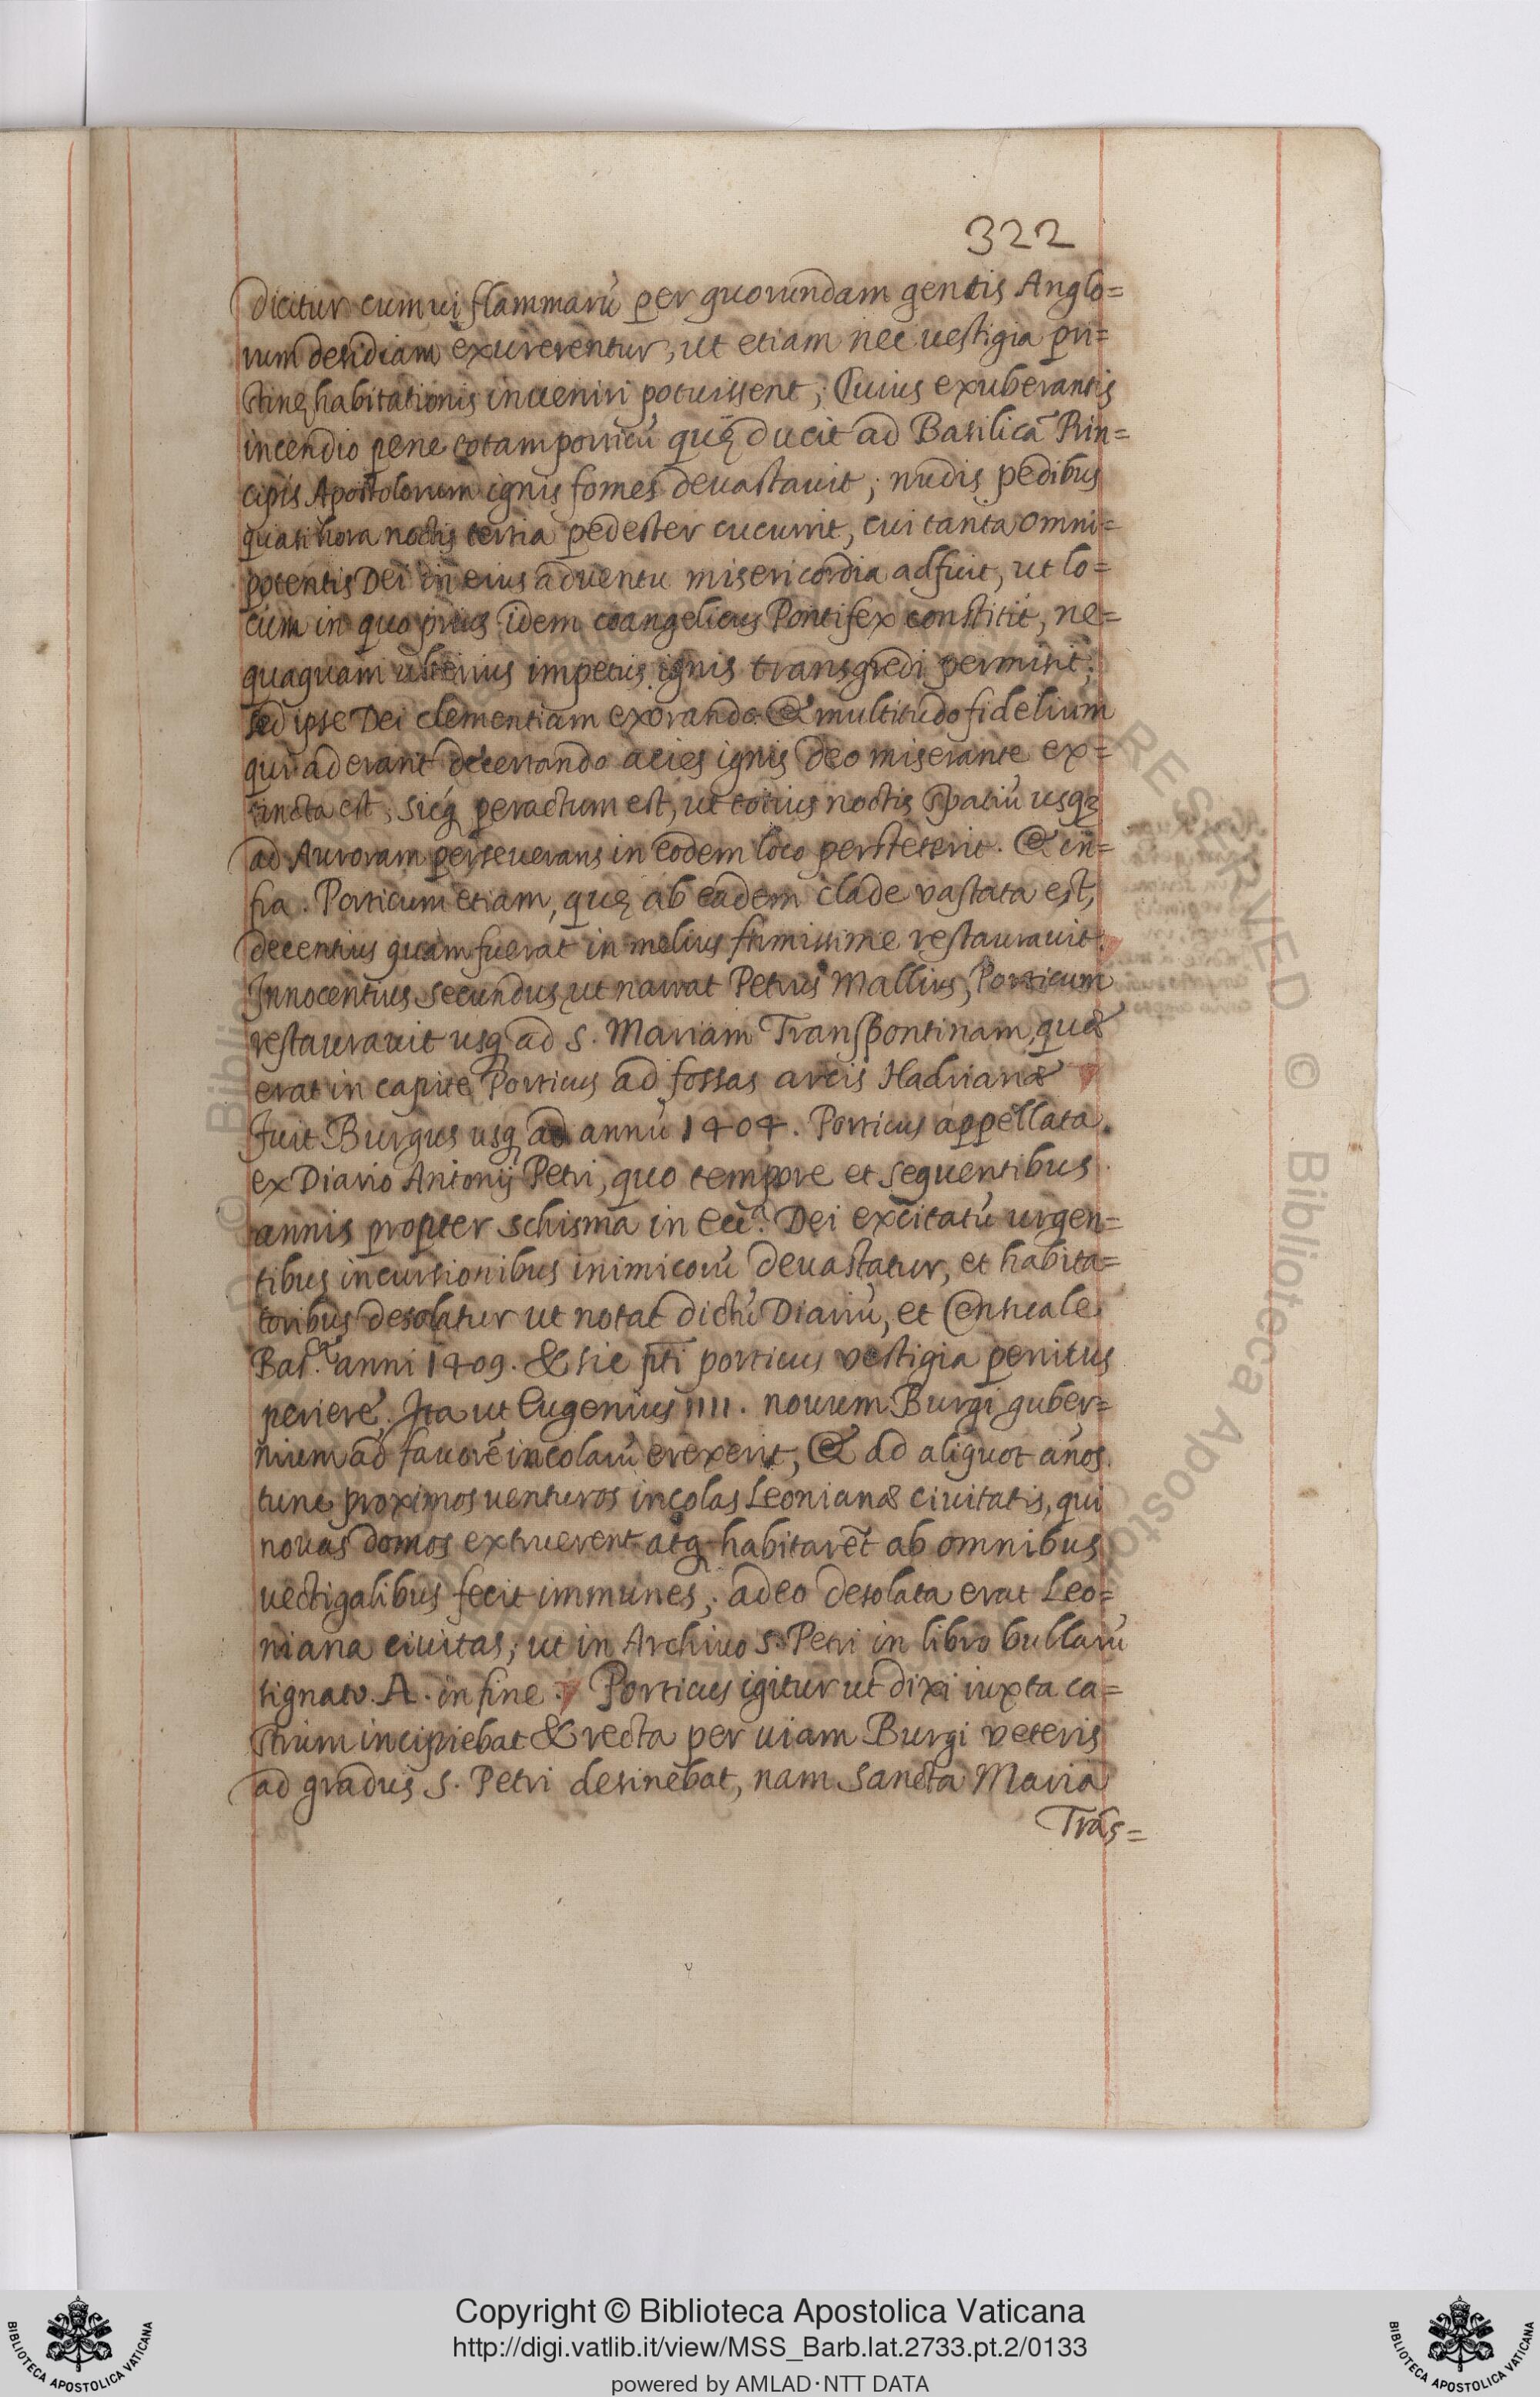 322
dicitur cum ui flammarũ per quorundam gentis Anglo=
rum desidiam exurerentur, ut etiam nec uestigia pri=
stinę habitationis inueniri potuissent; Cuius exuberantis
incendio pene totam porticũ quę ducit ad Basilicã Prin=
cipis Apostolorum ignis fomes deuastauit; nudis pedibus
quasi hora noctis tertia pedester cucurrit, cui tanta omni=
potentis Dei in eius aduentu misericordia adfuit, ut lo=
cum in quo prius idem coangelicus Pontifex constitit, ne=
quaquam ulterius impetus ignis transgredi permisit;
sed ipse Dei clementiam exorando & multitudo fidelium
qui aderant decertando acies ignis deo miserante ex=
tincta est; sicq́ peractum est, ut totius noctis spatiũ usqꝫ
ad Auroram perseuerans in eodem loco persteterit. & in=
fra. Porticum etiam, quę ab eadem clade vastata est,
decentius quam fuerat in melius firmissime restaurauit.
Innocentius secundus, ut narrat Petrus Mallius, Porticum
restaurauit usq ad S. Mariam Transpontinam, quæ
erat in capite Porticus ad fossas arcis Hadrianæ
Fuit Burgus usq ad annũ 1404. Porticus appellata
ex Diario Antonij Petri, quo tempore et sequentibus
annis propter schisma in eccᵃ. Dei excitatũ urgen=
tibus incursionibus inimicorũ deuastatur, et habita=
toribus desolatur ut notat dictũ Diariũ, et Censuale
Basᶜᵉ. anni 1409. & sic pñti porticus vestigia penitus
periere. Ita ut Eugenius IIII. nouum Burgi guber=
nium ad fauorẽ incolarũ erexerit, & ad aliquot años
tunc proximos venturos incolas Leonianæ ciuitatis, qui
nouas domos extruerent atq habitarẽt ab omnibus
vectigalibus fecit immunes, adeo desolata erat Leo=
niana ciuitas; ut in Archiuo S. Petri in libro bullarũ
signato. A. in fine. Porticus igitur ut dixi iuxta ca=
strum incipiebat & recta per uiam Burgi veteris
ad gradus S. Petri desinebat, nam Sancta Maria
Trãs=
Copyright © Biblioteca Apostolica Vaticana
http://digi.vatlib.it/view/MSS_Barb.lat.2733.pt.2/0133
powered by AMLAD·NTT DATA
BIBLIOTECA APOSTOLICA VATICANA
BIBLIOTECA APOSTOLICA VATICANA